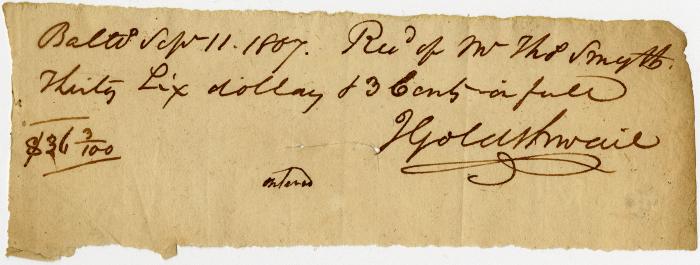 Balto Sepr 11. 1807. Recd of Mr Thos Smyth.
Thirty Six dollars & 3 Cents in full
J Goldthwait
$36 3/100
entered